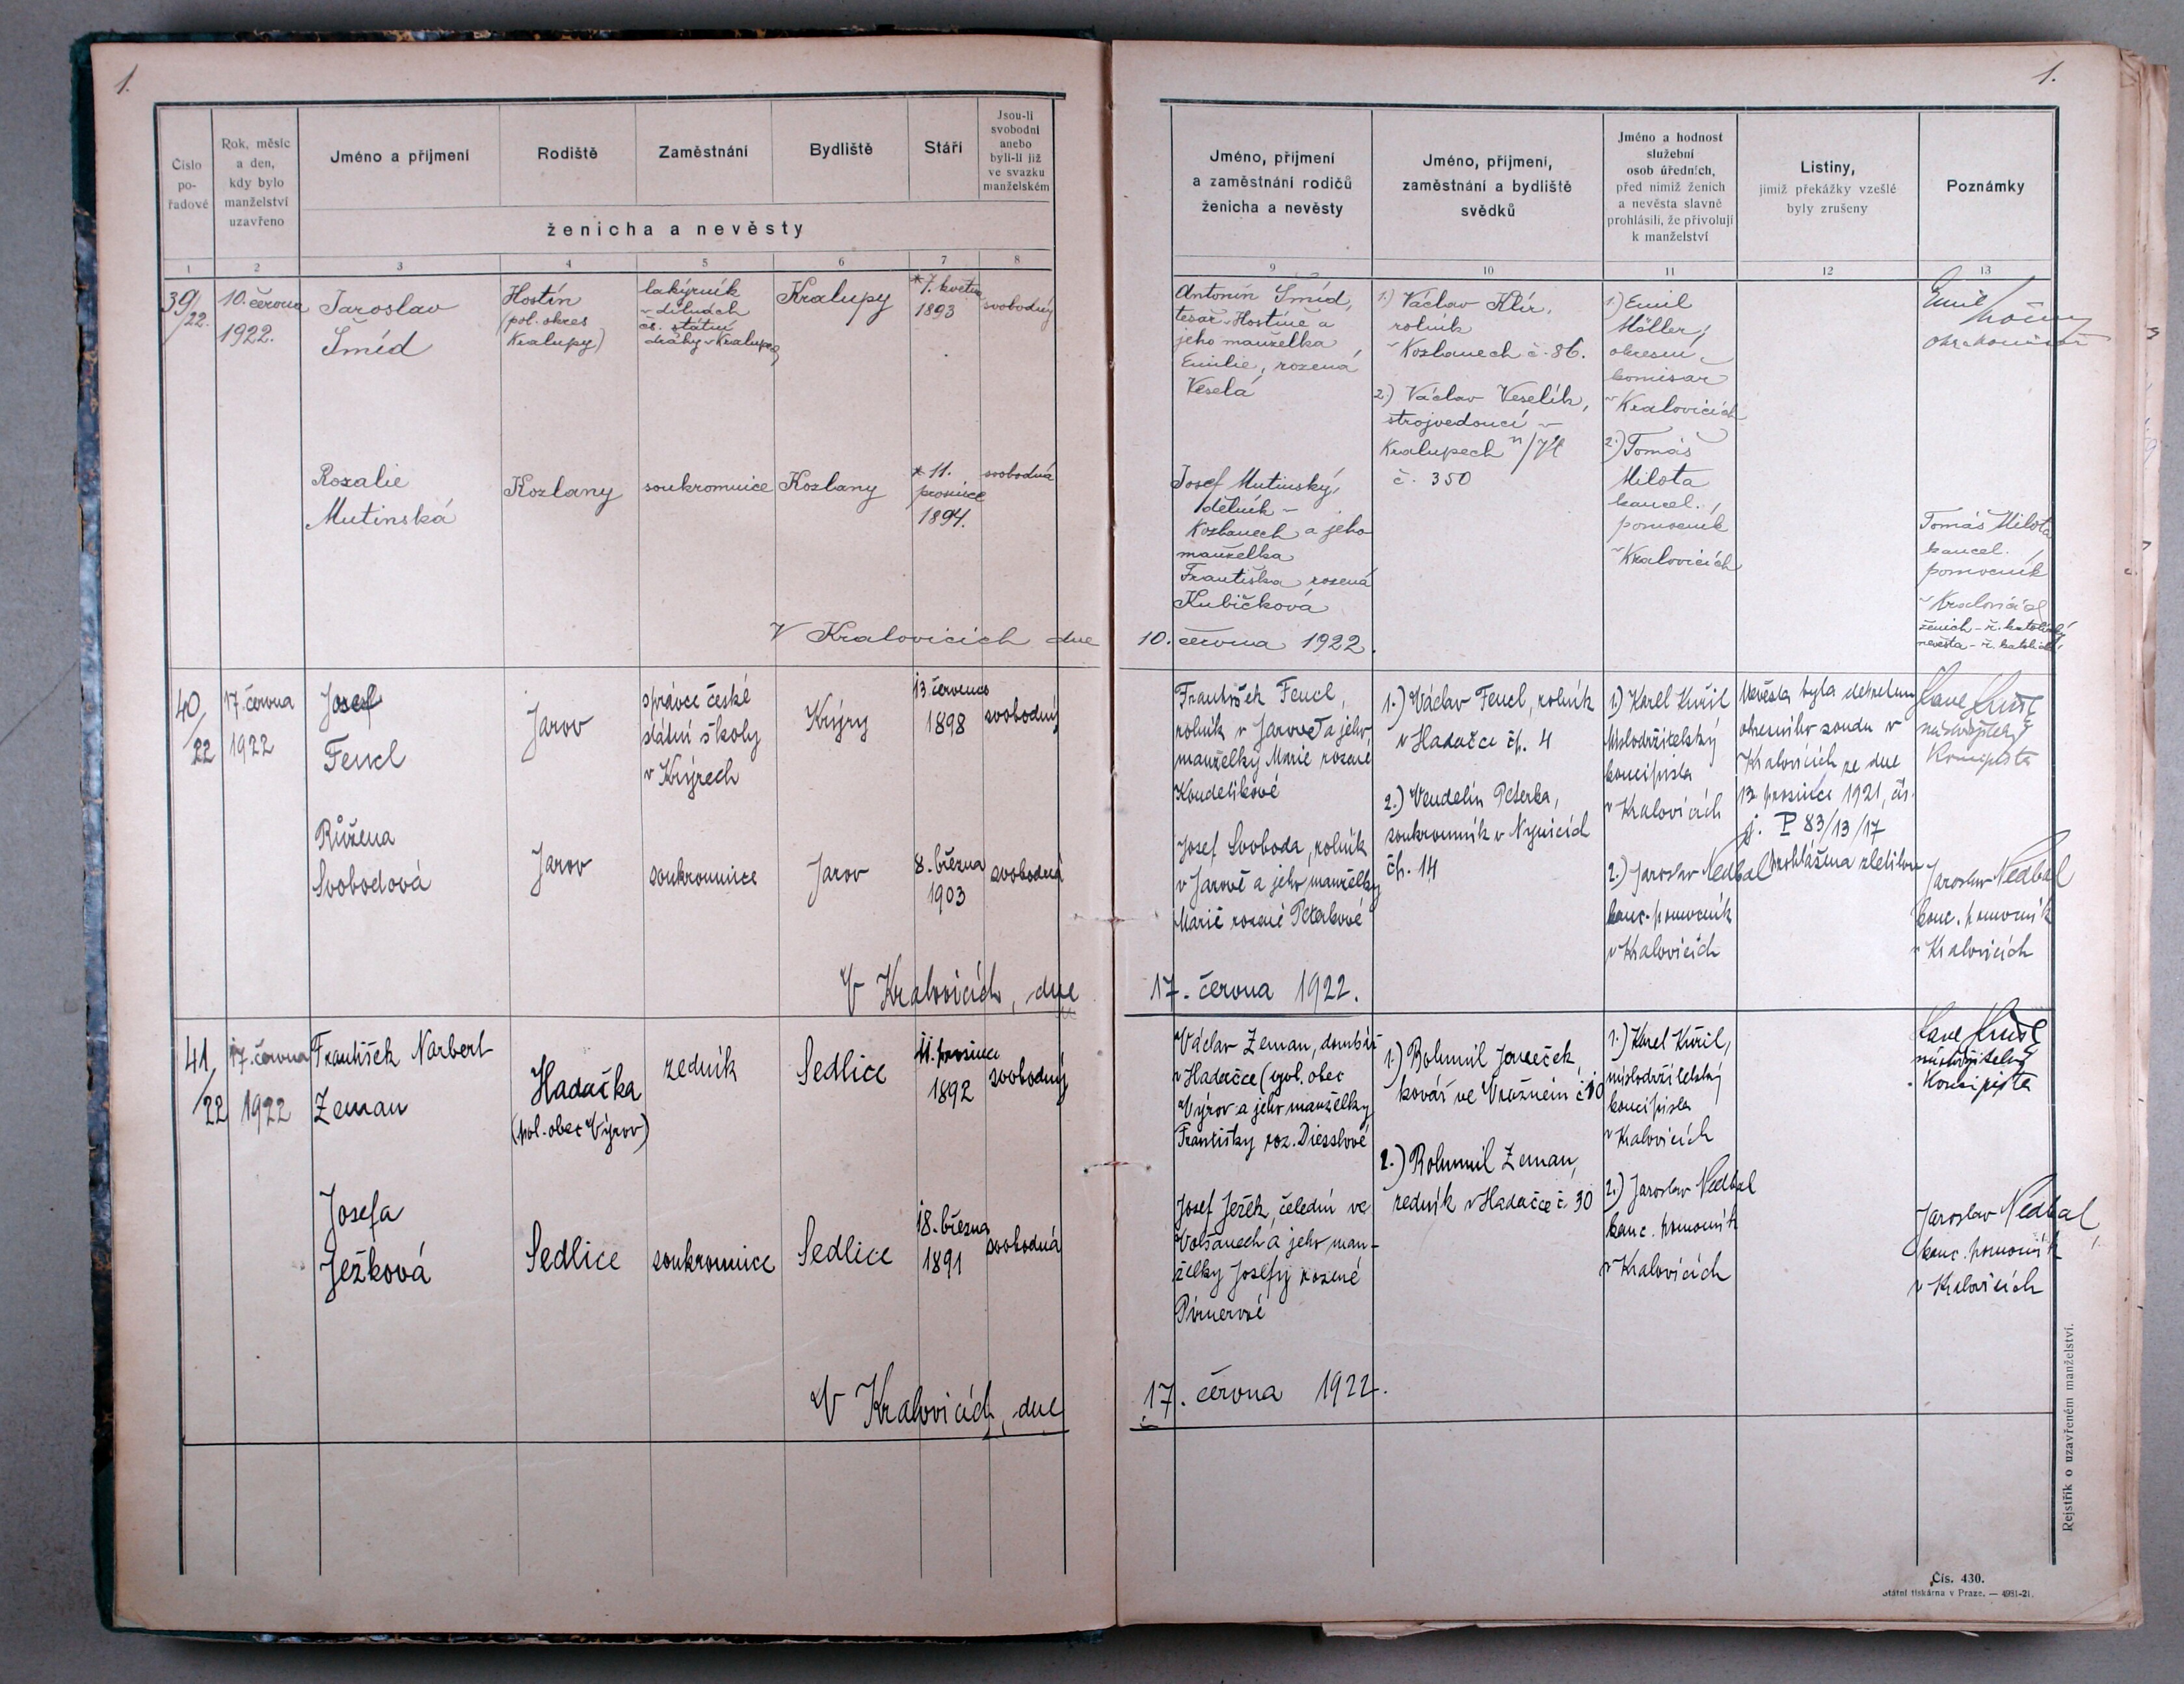 1.
Číslo
po-
řadové
Rok, měsíc
a den,
kdy bylo
manželství
uzavřeno
Jméno a příjmení
Rodiště
Zaměstnání
Bydliště
Stáří
Jsou-li
svobodni
anebo
byli-li již
ve svazku
manželském
ženicha a nevěsty
1 2 3 4 5 6 7 8
39/22.
10. června
1922.
Jaroslav
Šmíd
Hostín
(pol. okres
Kralupy)
lakýrník
v dílnách
čs. státní
dráhy v Kralupech
Kralupy
* 7. května
1893
svobodný
Rozalie
Mutinská
Kozlany
soukromnice
Kozlany
* 11.
prosince
1894.
svobodná
V Kralovicích dne
40/22
17. června
1922
Josef
Fencl
Jarov
správce české
státní školy
v Krýrech
Krýry
13. července
1898
svobodný
Růžena
Svobodová
Jarov
soukromnice
Jarov
8. března
1903
svobodná
V Kralovicích, dne
41/22
17. června
1922
František Norbert
Zeman
Hadačka
(pol. obec Výrov)
zedník
Sedlice
11. prosince
1892
svobodný
Josefa
Ježková
Sedlice
soukromnice
Sedlice
18. března
1891
svobodná
V Kralovicích, dne
1.
Jméno, příjmení
a zaměstnání rodičů
ženicha a nevěsty
Jméno, příjmení,
zaměstnání a bydliště
svědků
Jméno a hodnost
služební
osob úředních,
před nimiž ženich
a nevěsta slavně
prohlásili, že přivolují
k manželství
Listiny,
jimiž překážky vzešlé
byly zrušeny
Poznámky
9 10 11 12 13
Antonín Šmíd,
tesař v Hostíně a
jeho manželka
Emilie, rozená
Veselá
1.) Václav Klír,
rolník
v Kozlanech č. 86.
2.) Václav Veselík,
strojvedoucí v
Kralupech n/Vl
č. 350
1.) Emil
Möller,
okresní
komisař
v Kralovicích
2.) Tomáš
Milota
kancel.
pomocník
v Kralovicích
Emil
Josef Mutinský,
dělník v
Kozlanech a jeho
manželka
Františka rozená
Kubíčková
Tomáš Milota
kancel.
pomocník
v Kralovicích
ženich - ř. katolický
nevěsta - ř. katolická
10. června 1922.
František Fencl,
rolník v Jarově a jeho
manželky Marie rozené
Koudelíkové
1.) Václav Fencl, rolník
v Hadačce čp. 4
2.) Vendelín Peterka,
soukromník v Nynicích
čp. 14
1.) Karel Kuřil
místodržitelský
koncipista
v Kralovicích
2.) Jaroslav Nedbal
kanc. pomocník
v Kralovicích
Nevěsta byla dekretem
okresního soudu v
Kralovicích ze dne
13. prosince 1921, čís.
j. P 83/13/17
prohlášena zletilou
místodržitelský
koncipista
Josef Svoboda, rolník
v Jarově a jeho manželky
Marie rozené Peterkové
Jaroslav Nedbal
kanc. pomocník
v Kralovicích
17. června 1922.
Václav Zeman, domkář
v Hadačce (pol. obec
Výrov a jeho manželky
Františky roz. Diesslové
1.) Bohumil Janeček,
kovář ve Vražném č 10
2.) Bohumil Zeman,
zedník v Hadačce č. 30
1.) Karel Kuřil,
místodržitelský
koncipista
v Kralovicích
2.) Jaroslav Nedbal
kanc. pomocník
v Kralovicích
místodržitelský
koncipista
Josef Ježek, čeledín ve
Volšanech a jeho man-
želky Josefy rozené
Pirnerové
Jaroslav Nedbal,
kanc. pomocník
v Kralovicích
17. června 1922.
Rejstřík o uzavřeném manželství.
Čís. 430.
Státní tiskárna v Praze. — 4931-21.